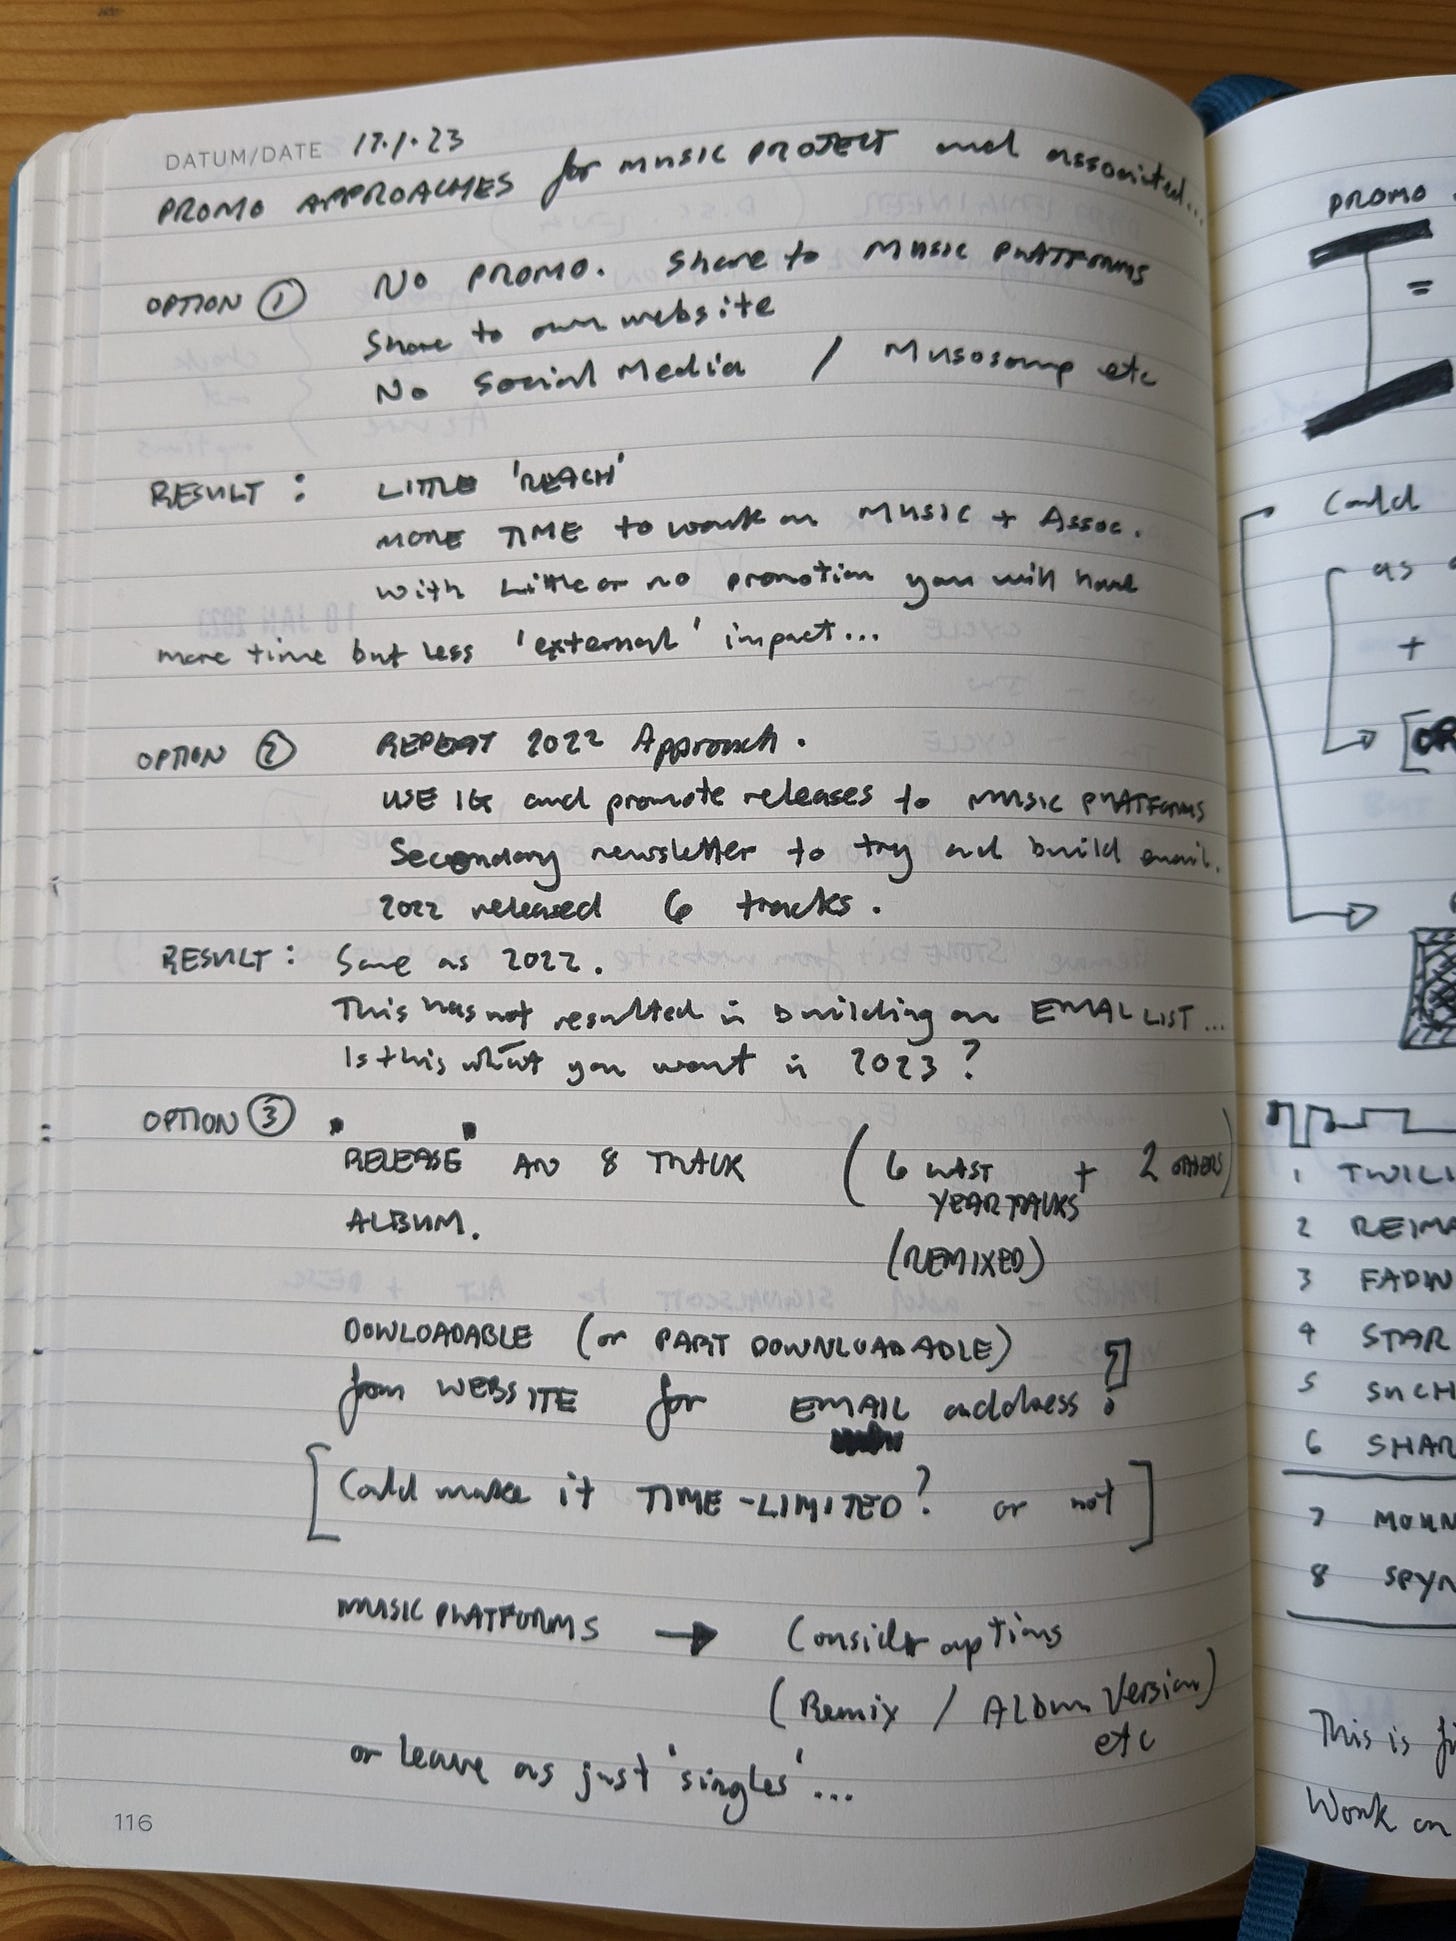 DATUM/DATE 17.1.23
PROMO APPROACHES for MUSIC PROJECT and associated...
OPTION ① NO PROMO. Share to MUSIC PLATFORMS
Share to own website
No Social Media / Musosoup etc
RESULT: LITTLE 'REACH'
MORE TIME to work on MUSIC + Assoc.
with little or no promotion you will have
more time but less 'external' impact...
OPTION ② REPEAT 2022 Approach.
USE IG and promote releases to MUSIC PLATFORMS
Secondary newsletter to try and build email.
2022 released 6 tracks.
RESULT: Same as 2022.
This has not resulted in building an EMAIL LIST...
Is this what you want in 2023?
OPTION ③
RELEASE AN 8 TRACK (6 LAST + 2 OTHERS)
YEAR TRACKS
ALBUM.
(REMIXED)
DOWLOADABLE (or PART DOWNLOADABLE)
from WEBSITE for EMAIL address?
[Could make it TIME-LIMITED? or not]
MUSIC PLATFORMS → Consider options
(Remix / Album Version)
etc
or leave as just 'singles'...
116
PROMO
=
Could
as
+
1 TWILI
2 REIMA
3 FADIN
4 STAR
5 SUCH
6 SHAR
7 MOUN
8 SPYN
This is fi
Work on